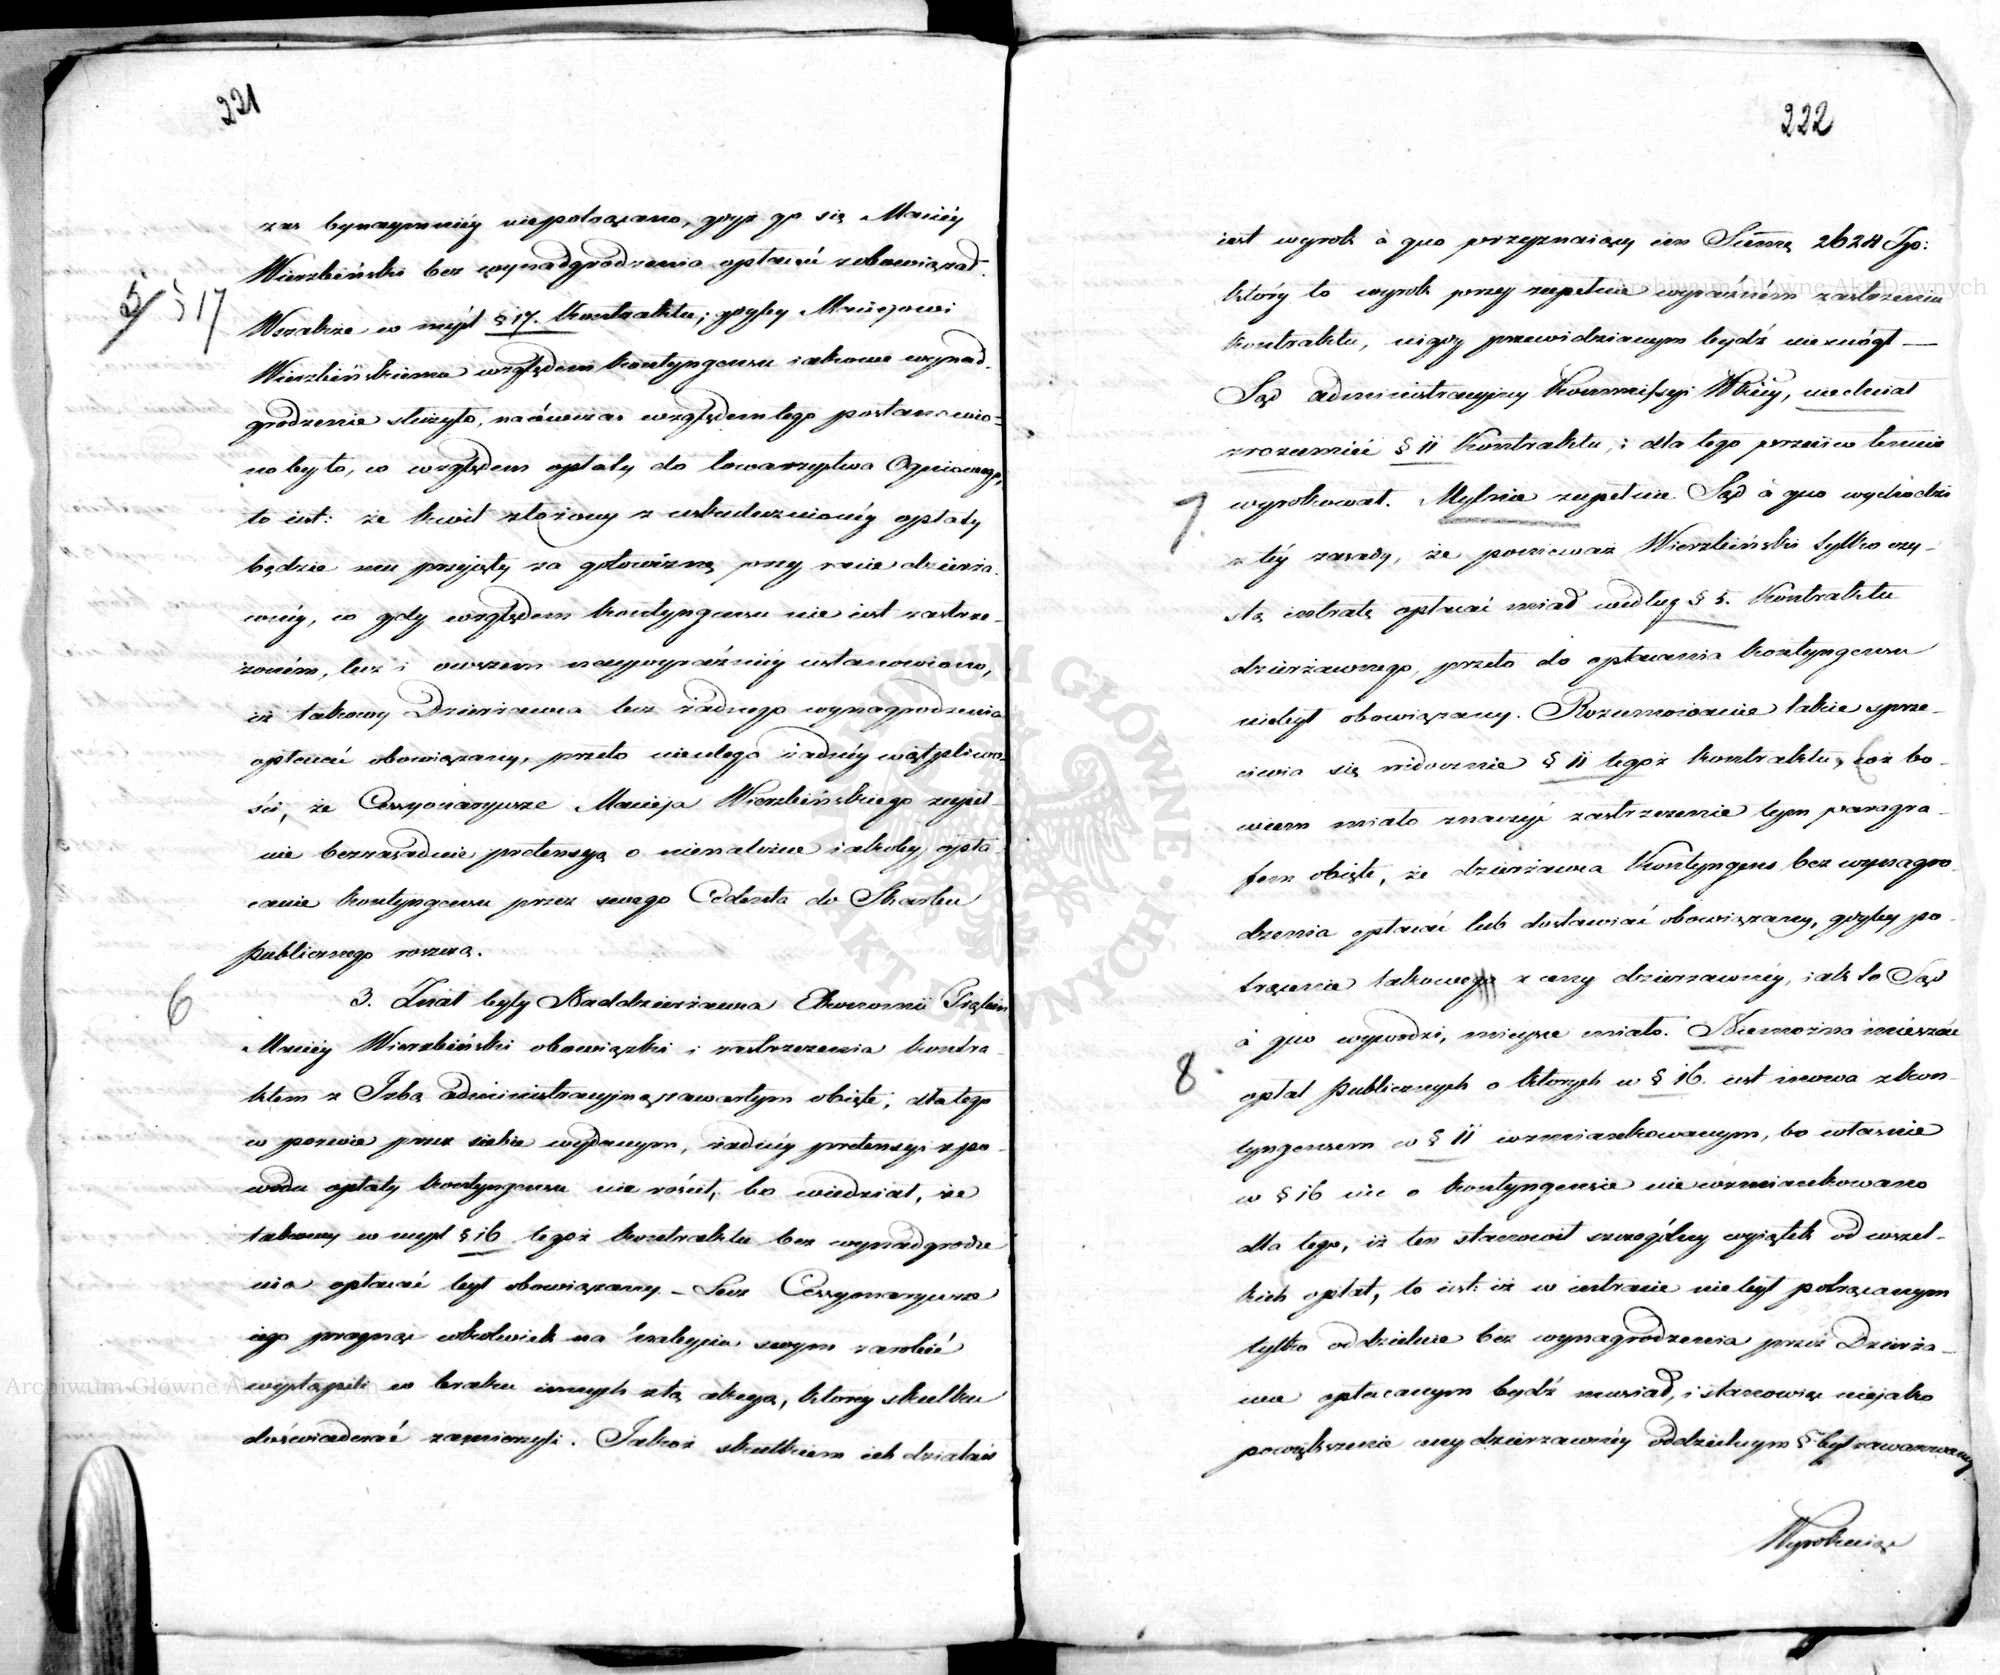 221
zas bynaymniéy niepotrącano, gdyż go się Maciéy
Wierzbiński bez wynadgrodzenia opłacać zobowiązał.
5/ § 17
Wszakże w myśl § 17. Kontraktu; gdyby Maciejowi
Wierzbińskiemu względem kontyngensu iakowe wynad-
grodzenie służyło, naówczas względem tego postanowio=
no było, co względem opłaty do Towarzystwa Ogniowego,
to iest: że kwit złożony z uskutecznionéy opłaty
będzie mu przyjęty za gotowiznę przy racie dzierża-
wnéy, co gdy względem kontyngensu nie iest zastrze-
żoném, lecz i owszem naywyraźniéy ustanowiono,
iż takowy Dzierżawca bez żadnego wynagrodzenia
opłacać obowiązany, przeto nieulega żadnéy wątpliwo-
ści, że Cessyonaryusze Macieja Wierzbińskiego zupeł-
nie bezzasadnie pretensyą o nienależne iakoby opła-
canie kontyngensu przez swego Cedenta do Skarbu
publicznego roszczą.
6
3. Znał były Naddzierżawca Ekonomii
Maciéy Wierzbiński obowiązki i zastrzeżenia kontra-
ktem z Izbą administracyjną zawartym obięte, dla tego
w pozwie przez siebie wydanym, żadnéy pretensyi z po-
wodu opłaty kontyngensu nie rościł, bo wiedział, że
takowy w myśl § 16 tegoż kontraktu bez wynadgrodze
nia opłacać był obowiązany – Lecz Cessyonaryusze
iego pragnąc cokolwiek na nabyciu swym zarobić
wystąpili w braku innych z tą akcyą, któréy skutku
doświadczać zamierzyli. Jakoż skutkiem ich działań
222
iest wyrok à quo przyznaiący im Summę 2628
który to wyrok przy zupełnie wyraźném zastrzeżeniu
kontraktu, nigdy przewidzianym bydź niemógł —
Sąd administracyjny Kommissyi Wkiéy, niechciał
zrozumieć § 11 Kontraktu, i dla tego przeciw temu
wyrokował. Mylnie zupełnie Sąd à quo wychodzi
7.
z téy zasady, że ponieważ Wierzbiński tylko czy-
stą intratę opłacać miał według § 5. Kontraktu
dzierżawnego, przeto do opłacania kontyngensu
niebył obowiązany. Rozumowanie takie sprze-
ciwia się widocznie § 11 tegoż kontraktu, coż bo-
wiem miało znaczyć zastrzeżenie tym paragra-
fem obięte, że dzierżawca kontyngens bez wynagro-
dzenia opłacać lub dostawiać obowiązany, gdyby po-
trącenie takowego z ceny dzierżawnéy, iak to Sąd
à quo wywodzi, mieysce miało. Niemożna mieszać
8.
opłat publicznych o których w § 16. iest mowa z kon-
tyngensem w § 11 wzmiankowanym, bo właśnie
w § 16 nic o kontyngensie niewzmiankowano
dla tego, iż ten stanowił szczególny wyiątek od wszel-
kich opłat, to iest: iż w intracie niebył potrącanym
tylko oddzielnie bez wynagrodzenia przez Dzierża-
wcę opłacanym bydź musiał, i stanowiąc niejako
powiększenie ceny dzierżawnéy oddzielnym § był zawarowany
Wyrokuiąc
Archiwum Główne Akt Dawnych
Archiwum Główne Akt Dawnych
ARCHIWUM GŁÓWNE AKT DAWNYCH